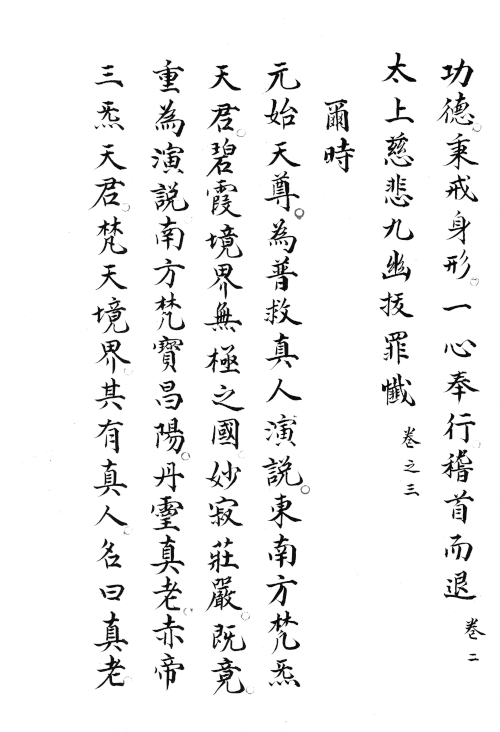 功德。秉戒身形。一心奉行稽首而退 卷二
太上慈悲九幽拔罪懺 卷之三
爾時
元始天尊。為普救真人演説。東南方梵炁
天君。碧霞境界無極之國妙寂莊嚴。既竟。
重為演説南方梵寶昌陽。丹靈真老。赤帝
三炁天君。梵天境界。其有真人。名曰真老